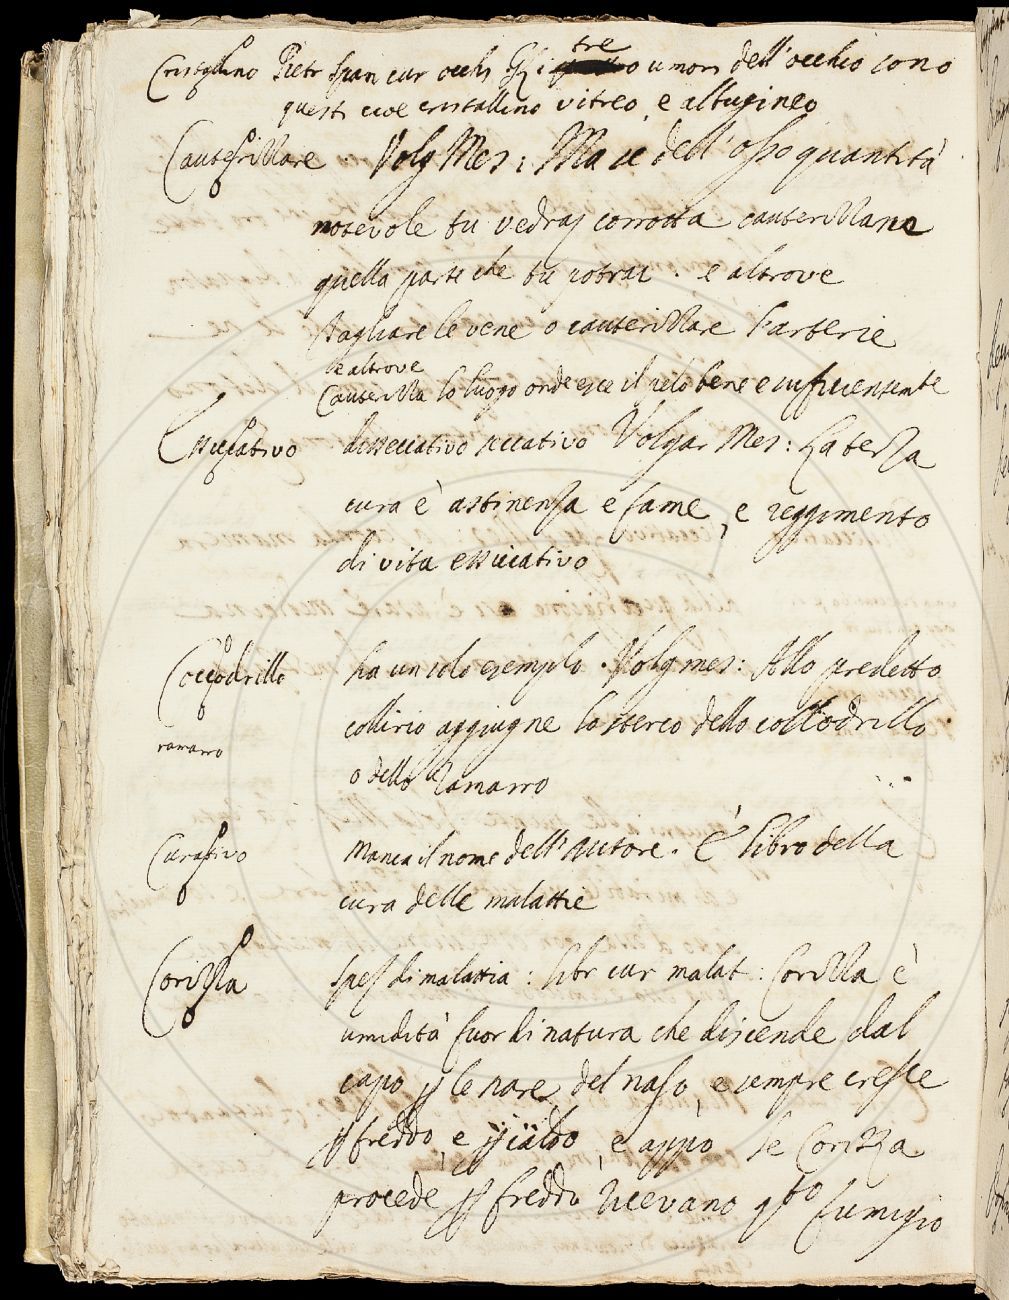 Cristallino Pietr Span cur occhi Gli tre umori dell'occhio sono
questi cioe cristallino vitreo, e albugineo
Cauterizzare Volg Mes: Ma se dell'osso quantità
notevole tu vedraj corrotta cauterizzane
quella parte che tu potrai. e altrove
tagliare le vene o cauterizzare l'arterie
e altrove
Cauterizza lo luogo onde esce il pelo bene e sufficientemte
Essiccativo disseccativo seccativo Volgar Mes: La terza
cura è astinenza e fame, e reggimento
di vita essiccativo
Coccodrillo ha un solo esempio. Volg mes: Allo predetto
collirio aggiugne lo sterco dello collodrillo
ramarro
o dello Ramarro
Curativo Manca il nome dell'Autore. È libro della
cura delle malattie
Corizza spez di malattia: libr cur malat: Corizza è
umidità fuor di natura che discende dal
capo p le nare del naso, e sempre cresce
p freddo, e p caldo, e appo se Corizza
procede p freddo ricevano qsto fumigio